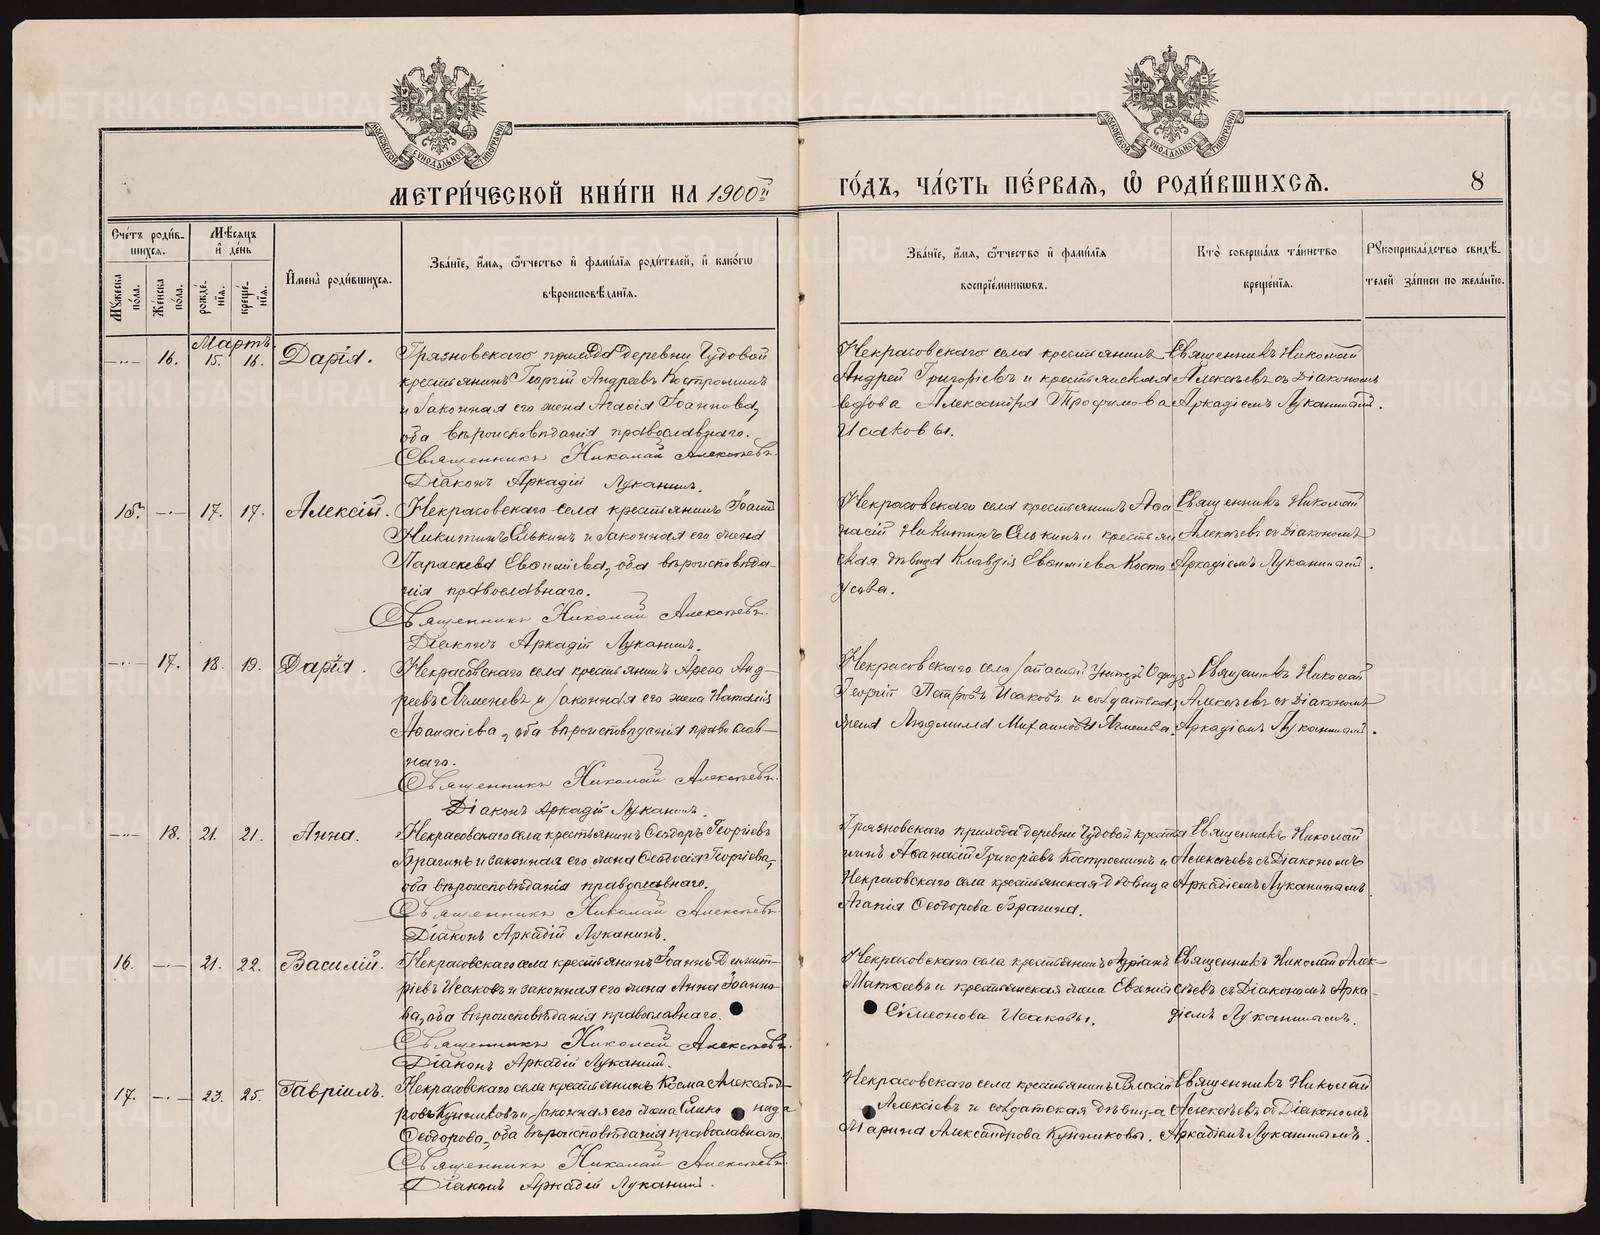 МОСКОВСКОЙ СѴНОДАЛЬНОЙ ТИПОГРАФІИ
МОСКОВСКОЙ СѴНОДАЛЬНОЙ ТИПОГРАФІИ
МЕТРИ́ЧЕСКОЙ КНИ́ГИ НА 1900й
ГО́ДЪ, ЧА́СТЬ ПЕ́РВАѦ, Ѡ҆ РОДИ́ВШИХСѦ.
8
Сче́тъ роди́в-
шихсѧ.
Мѣ́сѧцъ
и҆ де́нь
Мꙋ́жеска по́ла.
Же́нска по́ла.
рожде́-нїѧ.
креще́-нїѧ.
И҆мена̀ роди́вшихсѧ.
Зва́нїе, и҆́мѧ, ѻ҆́тчество и҆ фами́лїѧ роди́телей, и҆ како́гѡ
вѣроисповѣ́данїѧ.
Зва́нїе, и҆́мѧ, ѻ҆́тчество и҆ фами́лїѧ
воспрїе́мникѡвъ.
Кто̀ соверша́лъ та́инство
креще́нїѧ.
Рꙋкоприкла́дство свидѣ́-
телей за́писи по жела́нїю.
Мартъ.
16. 15. 16. Дарія.
Грязновскаго прихода деревни Чудовой
крестьянинъ Георгій Андреевъ Костроминъ
и законная его жена Агасія Іоаннова,
оба вѣроисповѣданія православнаго.
Священникъ Николай Алексѣевъ.
Діаконъ Аркадій Луканинъ.
Некрасовскаго села крестьянинъ
Андрей Григоріевъ и крестьянская
вдова Александра Трофимова
Исаковы.
Священникъ Николай
Алексѣевъ съ Діакономъ
Аркадіемъ Луканинымъ.
15. 17. 17. Алексій.
Некрасовскаго села крестьянинъ Іоаннъ
Никитинъ Елькинъ и законная его жена
Параскева Евѳиміева, оба вѣроисповѣда-
нія православнаго.
Священникъ Николай Алексѣевъ.
Діаконъ Аркадій Луканинъ.
Некрасовскаго села крестьянинъ Аѳа
насій Никитинъ Елькинъ и крестьян
ская дѣвица Клавдія Евѳиміева Косто
усова.
Священникъ Николай
Алексѣевъ съ Діакономъ
Аркадіемъ Луканинымъ.
17. 18. 19. Дарія.
Некрасовскаго села крестьянинъ Анд-
реевъ и законная его жена Наталія
Аѳанасіева, оба вѣроисповѣданія православ-
наго.
Священникъ Николай Алексѣевъ.
Діаконъ Аркадій Луканинъ.
Некрасовскаго села запасный
Георгій Петровъ Исаковъ и солдатская
жена Людмилла Михаилова
Священникъ Николай
Алексѣевъ съ Діакономъ
Аркадіемъ Луканинымъ.
18. 21. 21. Анна.
Некрасовскаго села крестьянинъ Ѳеодоръ Георгіевъ
Брагинъ и законная его жена Ѳеодосія Георгіева,
оба вѣроисповѣданія православнаго.
Священникъ Николай Алексѣевъ.
Діаконъ Аркадій Луканинъ.
Грязновскаго прихода деревни Чудовой крестья
нинъ Аѳанасій Григоріевъ Костроминъ и
Некрасовскаго села крестьянская дѣвица
Агапія Ѳеодорова Брагина.
Священникъ Николай
Алексѣевъ съ Діакономъ
Аркадіемъ Луканинымъ.
16. 21. 22. Василій.
Некрасовскаго села крестьянинъ Іоаннъ Димит-
ріевъ Исаковъ и законная его жена Анна Іоанно-
ва, оба вѣроисповѣданія православнаго.
Священникъ Николай Алексѣевъ.
Діаконъ Аркадій Луканинъ.
Некрасовскаго села крестьянинъ Адріанъ
Матѳеевъ и крестьянская жена Евгенія
Сѵмеонова Исаковы.
Священникъ Николай Алек-
сѣевъ съ Діакономъ Арка-
діемъ Луканинымъ.
17. 23. 25. Гавріилъ.
Некрасовскаго села крестьянинъ Косма Александ-
ровъ Кунниковъ и законная его жена
Ѳеодорова, оба вѣроисповѣданія православнаго.
Священникъ Николай Алексѣевъ.
Діаконъ Аркадій Луканинъ.
Некрасовскаго села крестьянинъ Власій
Алексіевъ и солдатская дѣвица
Марина Александрова Кунниковы.
Священникъ Николай
Алексѣевъ съ Діакономъ
Аркадіемъ Луканинымъ.
METRIKI.GASO-URAL.RU